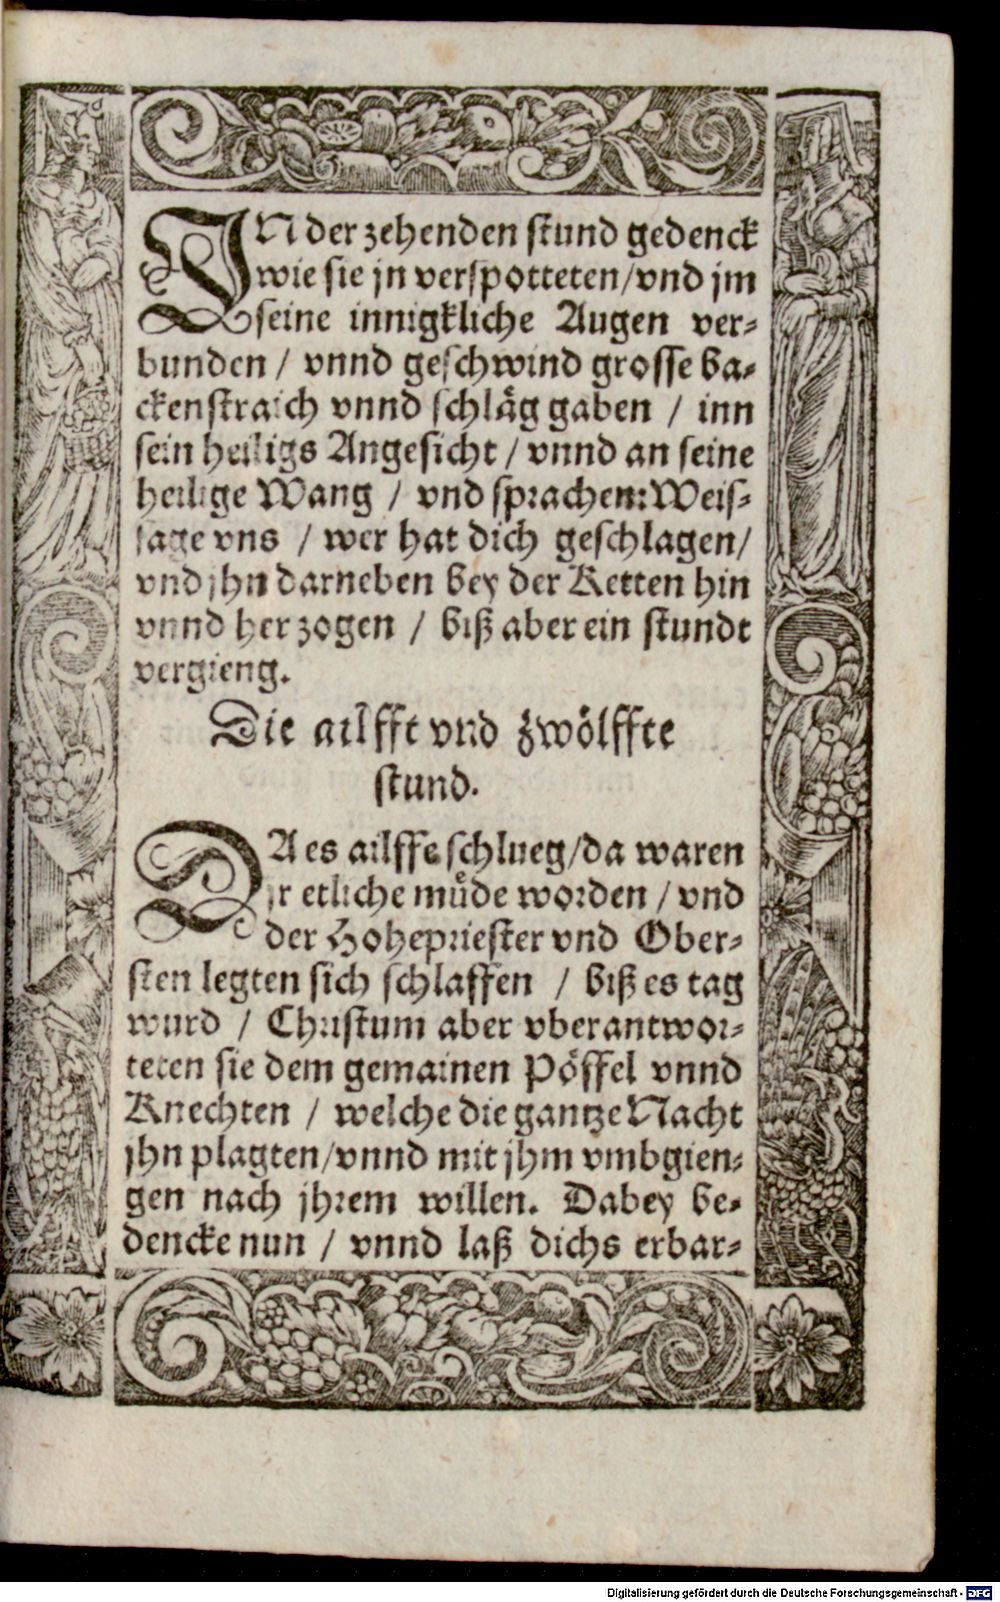 IN der zehenden stund gedenck
wie sie jn verspotteten/vnd jm
seine innigkliche Augen ver-
bunden / vnnd geschwind grosse ba-
ckenstraich vnnd schläg gaben / inn
sein heiligs Angesicht / vnnd an seine
heilige Wang / vnd sprachen: Weis-
sage vns / wer hat dich geschlagen/
vnd jhn darneben bey der Ketten hin
vnnd her zogen / biß aber ein stundt
vergieng.
Die ailfft vnd zwölffte
stund.
DA es ailffe schlueg/da waren
jr etliche müde worden / vnd
der Hohepriester vnd Ober-
sten legten sich schlaffen / biß es tag
wurd / Christum aber vberantwor-
teten sie dem gemainen Pöffel vnnd
Knechten / welche die gantze Nacht
jhn plagten/vnnd mit jhm vmbgien-
gen nach jhrem willen. Dabey be-
dencke nun / vnnd laß dichs erbar-
Digitalisierung gefördert durch die Deutsche Forschungsgemeinschaft - DFG